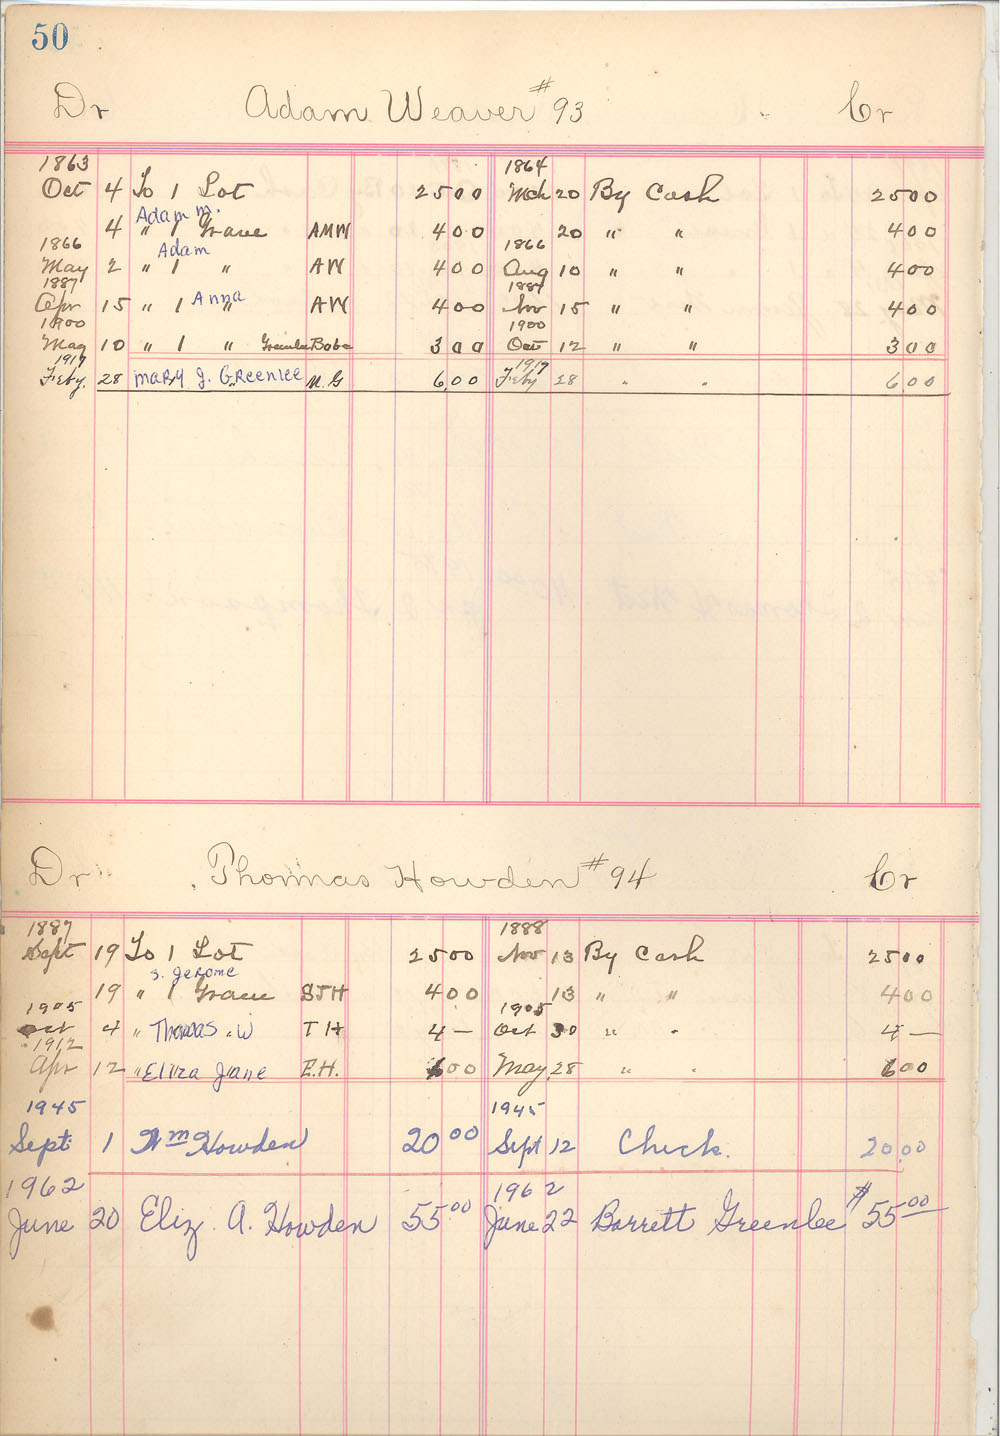 50
Dr Adam Weaver #93 Cr
1863 1864
Oct 4 To 1 Lot 25 00 Mch 20 By Cash 25 00
Adam M.
4 " 1 Grave AMW 4 00 20 " " 4 00
1866 Adam 1866
May 2 " 1 " AW 4 00 Aug 10 " " 4 00
1887 1887
Apr 15 " 1 Anna " AW 4 00 Nov 15 " " 4 00
1900 1900
May 10 " 1 " Greenlee Babe 3 00 Oct 12 " " 3 00
1917 1917
Feby. 28 Mary J. Greenlee M.G 6 00 Feby 28 " " 6 00
Dr Thomas Howden #94 Cr
1887 1888
Sept 19 To 1 Lot 25 00 Nov 13 By Cash 25 00
S. Jerome
19 " 1 Grave SJH 4 00 13 " " 4 00
1905 1905
Oct 4 " Thomas W TH 4 — Oct 30 " " 4 —
1912
Apr 12 " Eliza Jane E.H. 6 00 May 28 " " 6 00
1945 1945
Sept 1 Wm Howden 20 00 Sept 12 Check. 20.00
1962 1962
June 20 Eliz. A. Howden 55 00 June 22 Barrett Greenlee $55 00